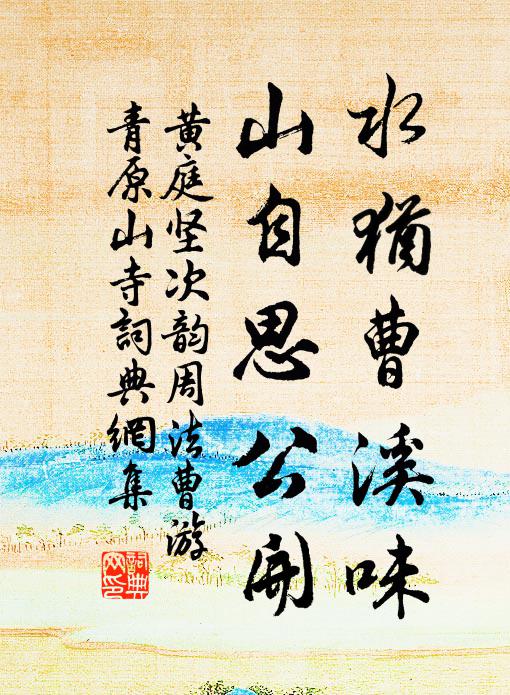 水猶曹溪味
山自思公開
黄庭坚次韵周法曹游
青原山寺詞典網集